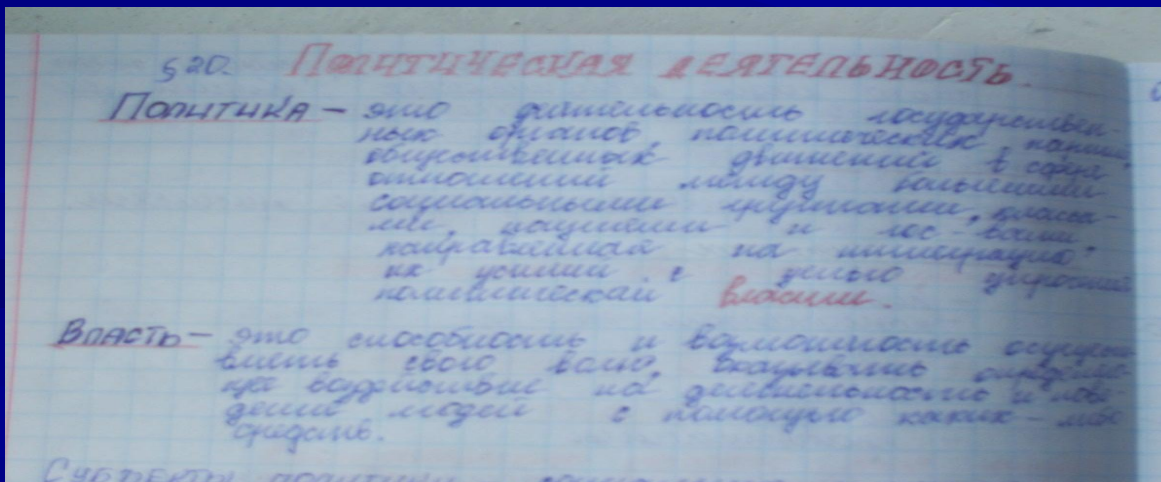 §20. Политическая деятельность.
Политика – это деятельность государствен-
ных органов политических партий,
общественных движений в сфере
отношений между большими
социальными группами, класса-
ми, нациями и гос-вами
направленная на интеграцию
их усилий с целью
политической власти.
Власть – это способность и возможность осущест
влять свою волю, оказывать определён
ное воздействие на деятельность и пове
дение людей с помощью каких-либо
средств.
Субъекты политики